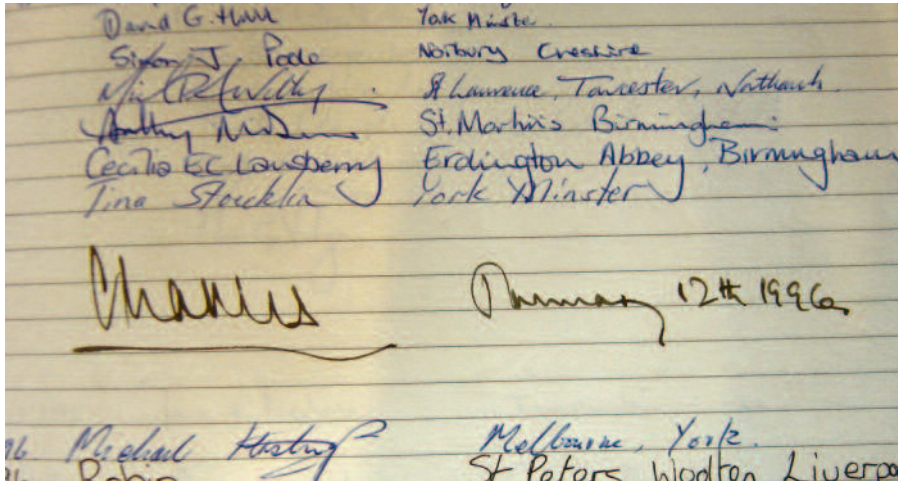 David G. Hull York Minster
Simon J. Poole Norbury Cheshire
St Lawrence, Towcester, Northants.
Anthony St. Martin's Birmingham
Cecilia EC Lansberry Erdington Abbey, Birmingham
Tina Stoecklin York Minster
Charles 12th 1996
96 Michael Melbourne, York.
96 Robin St Peters Woolton Liverpo